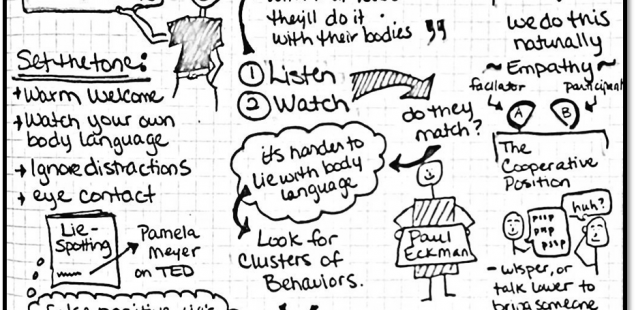 they'll do it
with their bodies "
Set the tone:
→ Warm Welcome
→ Watch your own
body language
→ Ignore distractions
→ eye contact
Lie-
Spotting
Pamela
Meyer
on TED
① Listen
② Watch
do they
match?
it's harder to
lie with body
language
Look for
Clusters of
Behaviors.
Paul
Eckman
we do this
naturally
~Empathy~
facilator
participant
A
B
The
Cooperative
Position
pssp
psp
pssp
huh?
- wisper, or
talk lower to
bring someone